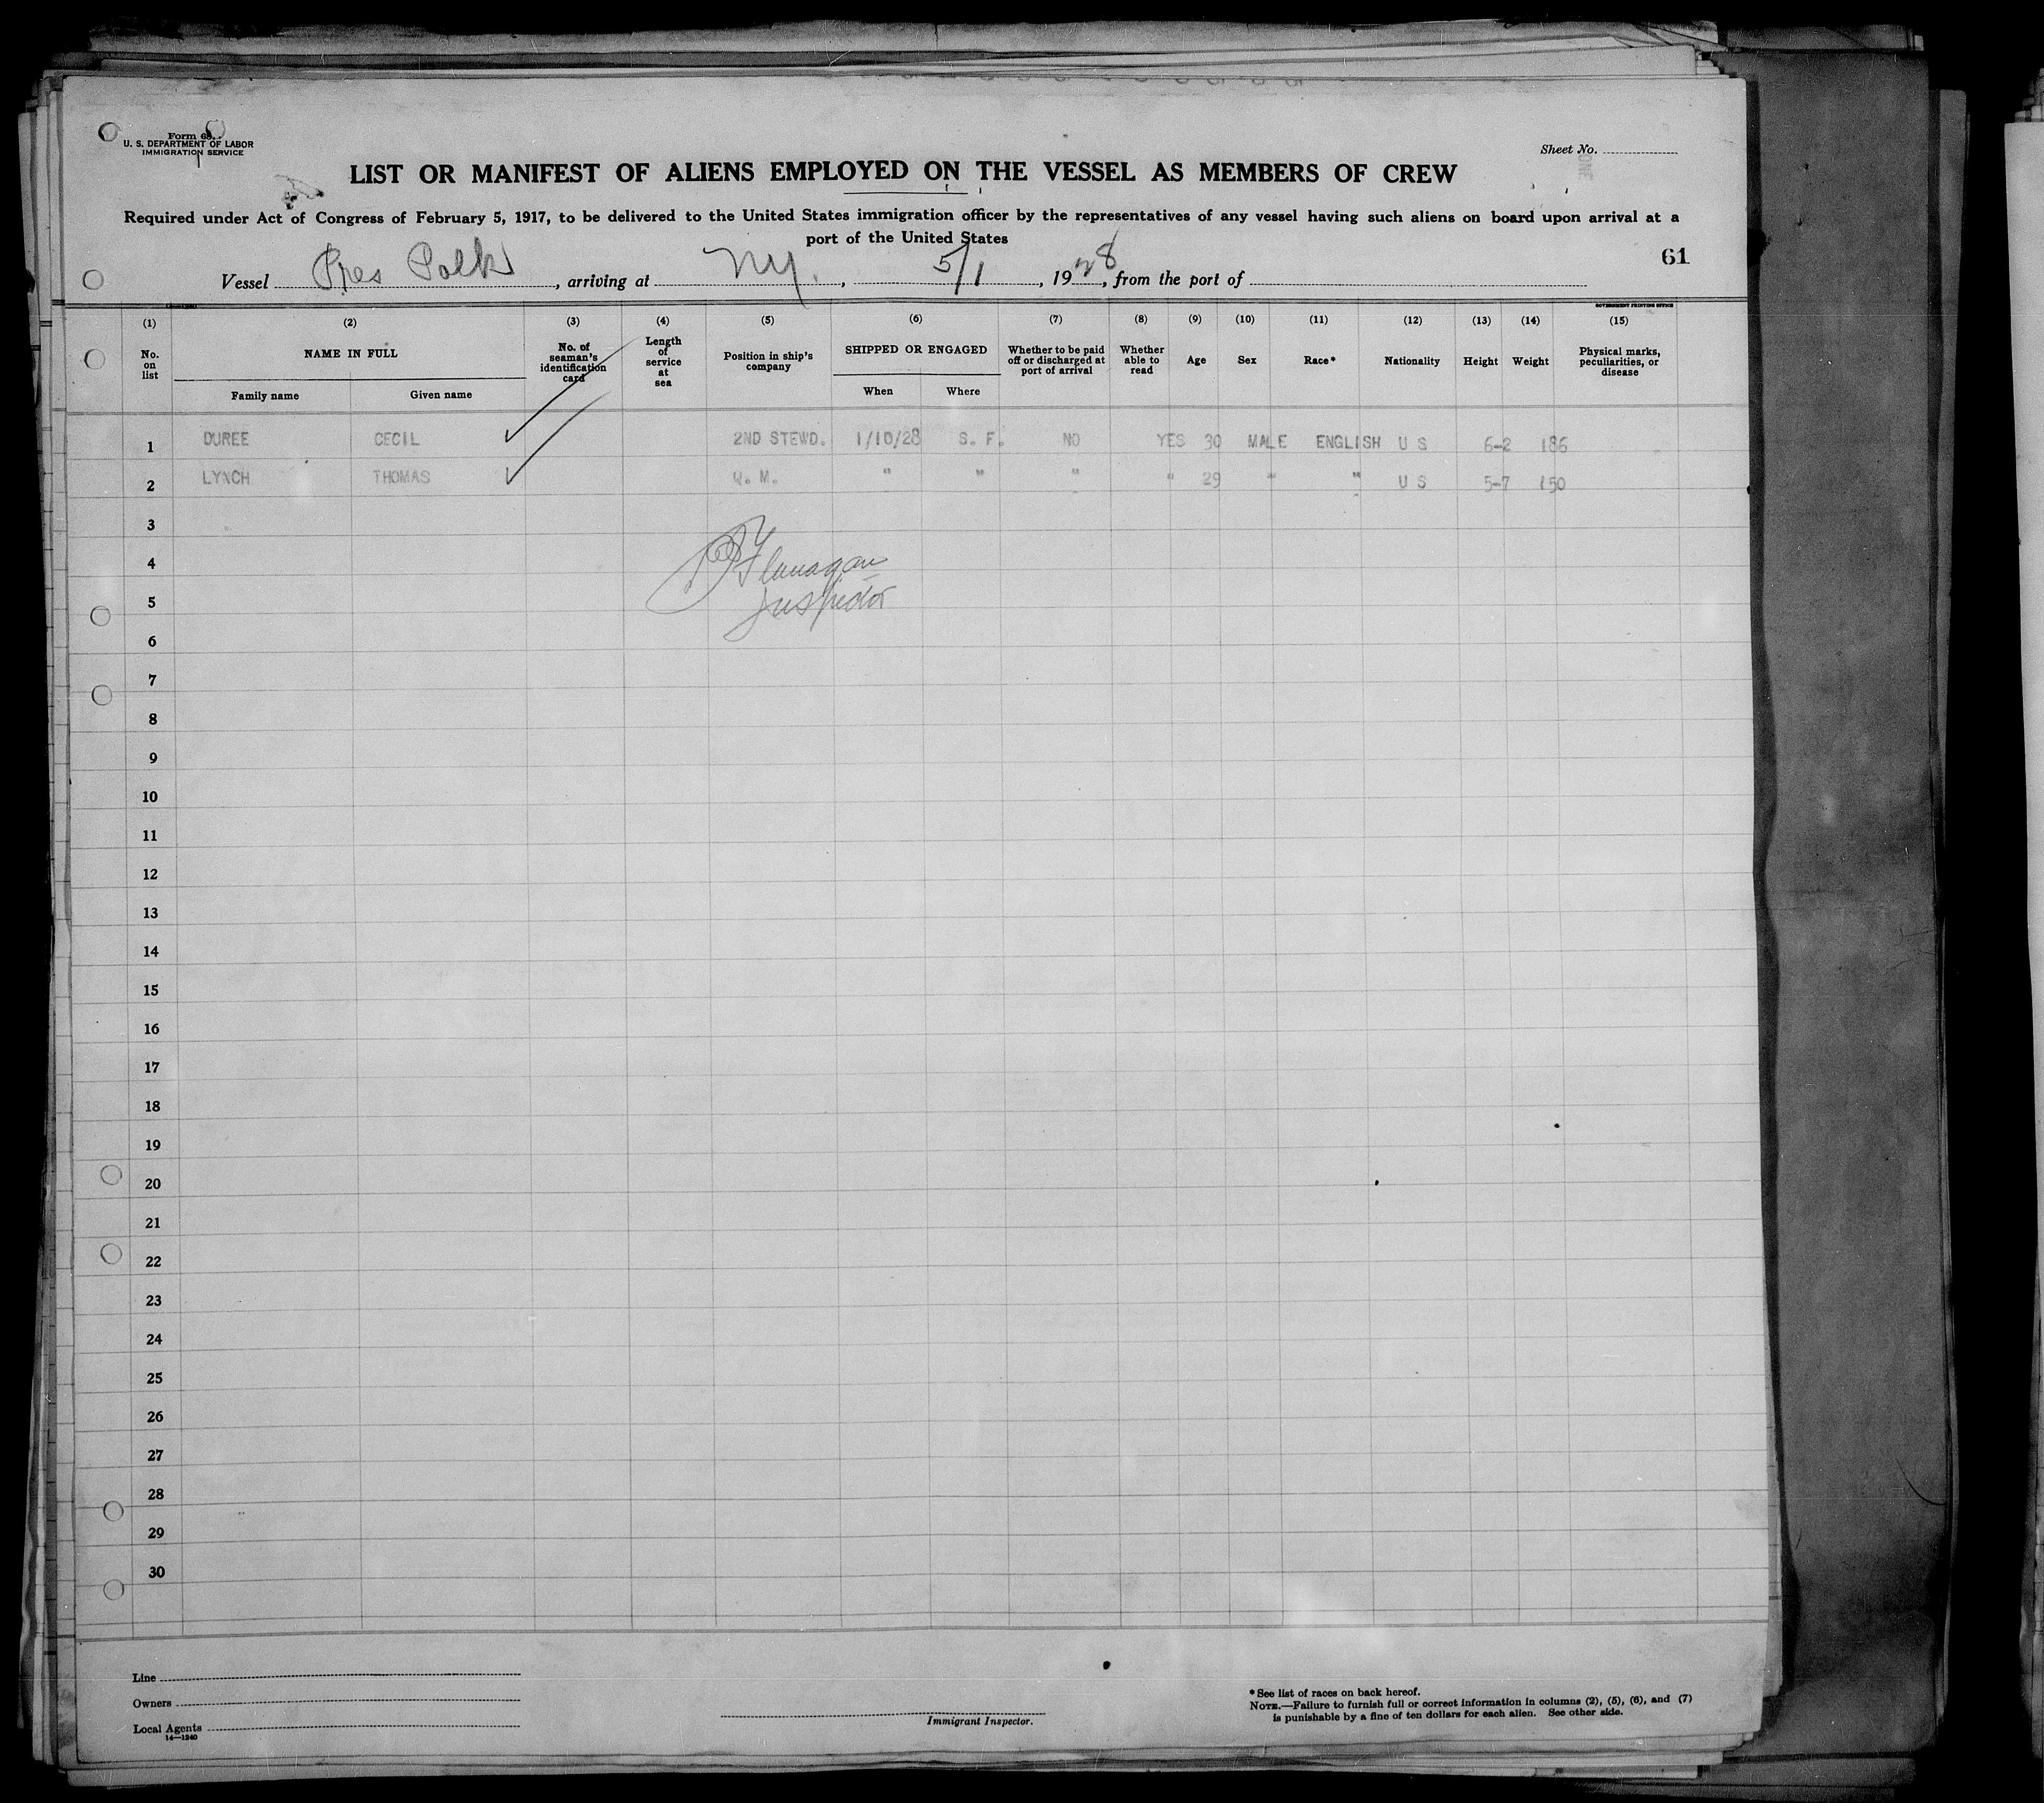 Form 68
U. S. DEPARTMENT OF LABOR
IMMIGRATION SERVICE
Sheet No.
ONE
LIST OR MANIFEST OF ALIENS EMPLOYED ON THE VESSEL AS MEMBERS OF CREW
Required under Act of Congress of February 5, 1917, to be delivered to the United States immigration officer by the representatives of any vessel having such aliens on board upon arrival at a
port of the United States
61
Vessel Pres Polk, arriving at N.Y., 5/1, 1928, from the port of
GOVERNMENT PRINTING OFFICE
(1) (2) (3) (4) (5) (6) (7) (8) (9) (10) (11) (12) (13) (14) (15)
No. on list
NAME IN FULL
Family name Given name
No. of seaman's identification card
Length of service at sea
Position in ship's company
SHIPPED OR ENGAGED
When Where
Whether to be paid off or discharged at port of arrival
Whether able to read
Age
Sex
Race*
Nationality
Height
Weight
Physical marks, peculiarities, or disease
1 DUREE CECIL ✓ 2ND STEWD. 1/10/28 S. F. NO YES 30 MALE ENGLISH U S 6-2 186
2 LYNCH THOMAS ✓ Q. M. " " " " 29 " " U S 5-7 150
3
4
Flanagan
5
Inspector
6
7
8
9
10
11
12
13
14
15
16
17
18
19
20
21
22
23
24
25
26
27
28
29
30
Line
Owners
Local Agents
14—1240
Immigrant Inspector.
* See list of races on back hereof.
NOTE.—Failure to furnish full or correct information in columns (2), (5), (6), and (7)
is punishable by a fine of ten dollars for each alien. See other side.